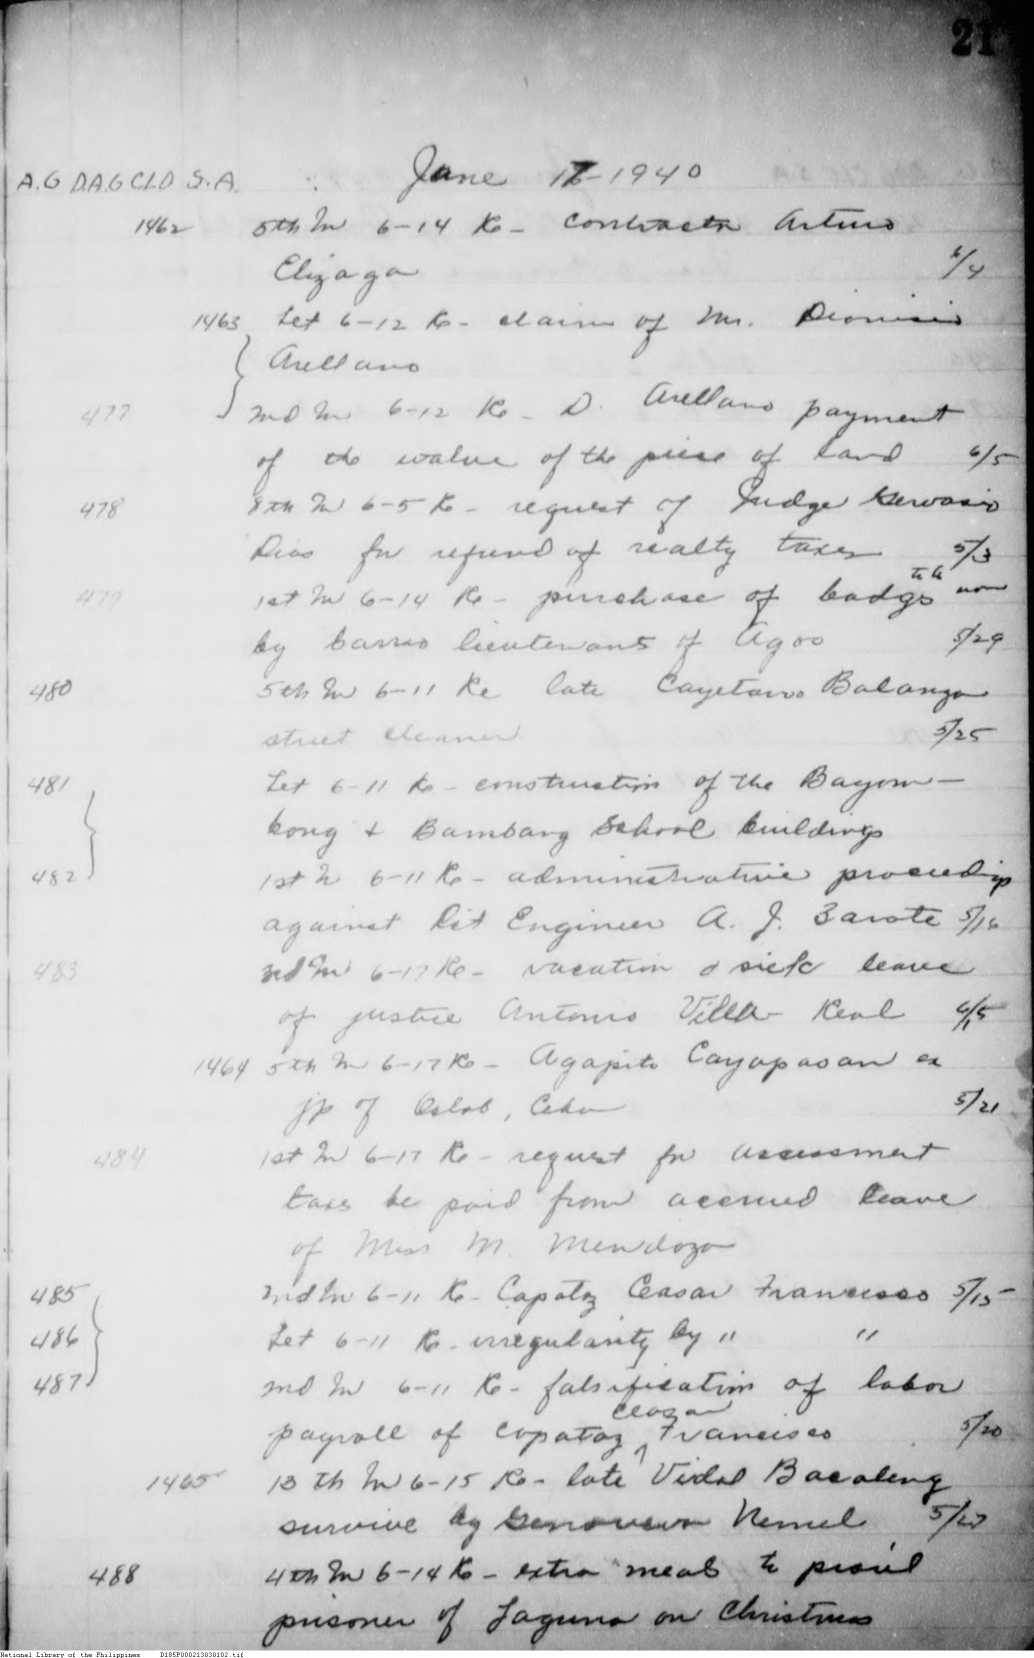 21
A.G D.A.G C.L.D S.A. June 17-1940
1462 5th In 6-14 Re - contractor Arturo
Elizaga 6/4
1463 Let 6-12 Re - claim of Mr. Dionisio
Arellano
477 2nd In 6-12 Re - D. Arellano payment
of the value of the piece of land 6/5
478 8th In 6-5 Re - request of Judge Gervasio
Dias for refund of realty taxes 5/3
479 1st In 6-14 Re - purchase of badge to be worn
by barrio lieutenants of Agoo 5/29
480 5th In 6-11 Re late Cayetano Balanga
street cleaner 5/25
481 Let 6-11 Re - construction of the Bayom-
bong & Bambang School buildings
482 1st In 6-11 Re - administrative proceedings
against Dist Engineer A. J. Zarate 5/16
483 2nd In 6-17 Re - vacation & sick leave
of justice Antonio Villa-Real 6/5
1464 5th In 6-17 Re - Agapito Cayapasan ex
jp of Oslob, Cebu 5/21
484 1st In 6-17 Re - request for assessment
taxes be paid from accrued leave
of Miss M. Mendoza
485 2nd In 6-11 Re - Capataz Ceasar Francisco 5/15
486 Let 6-11 Re - irregularity by " "
487 2nd In 6-11 Re - falsification of labor
payroll of capataz Ceasar Francisco 5/20
1465 13th In 6-15 Re - late Vidal Bacaleng
survive by Genoveva Nemel 5/27
488 4th In 6-14 Re - extra meal to prov'l
prisoner of Laguna on Christmas
National Library of the Philippines D185P000213030102.tif